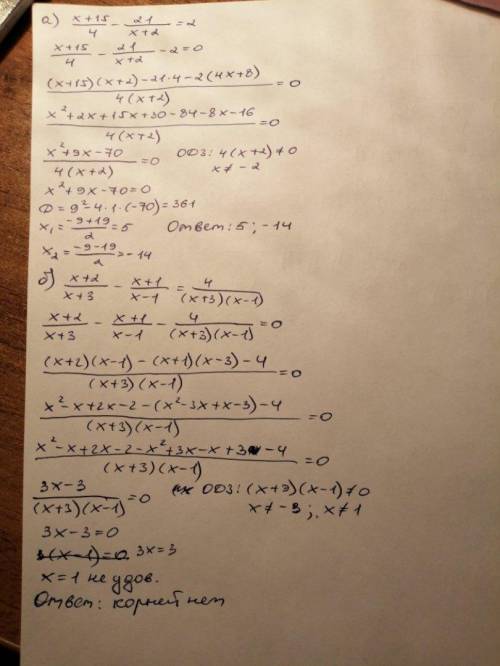 а) (x+15)/4 - 21/(x+2) = 2
(x+15)/4 - 21/(x+2) - 2 = 0
((x+15)(x+2) - 21·4 - 2(4x+8))/(4(x+2)) = 0
(x²+2x+15x+30-84-8x-16)/(4(x+2)) = 0
(x²+9x-70)/(4(x+2)) = 0 ОДЗ: 4(x+2)≠0
x≠-2
x²+9x-70=0
D = 9²-4·1·(-70) = 361
x₁ = (-9+19)/2 = 5 Ответ: 5; -14
x₂ = (-9-19)/2 = -14
б) (x+2)/(x+3) - (x+1)/(x-1) = 4/((x+3)(x-1))
(x+2)/(x+3) - (x+1)/(x-1) - 4/((x+3)(x-1)) = 0
((x+2)(x-1) - (x+1)(x-3) - 4)/((x+3)(x-1)) = 0
(x²-x+2x-2-(x²-3x+x-3)-4)/((x+3)(x-1)) = 0
(x²-x+2x-2-x²+3x-x+3-4)/((x+3)(x-1)) = 0
(3x-3)/((x+3)(x-1)) = 0 ОДЗ: (x+3)(x-1)≠0
x≠-3; x≠1
3x-3=0
3(x-1)=0 3x=3
x=1 не удов.
Ответ: корней нет